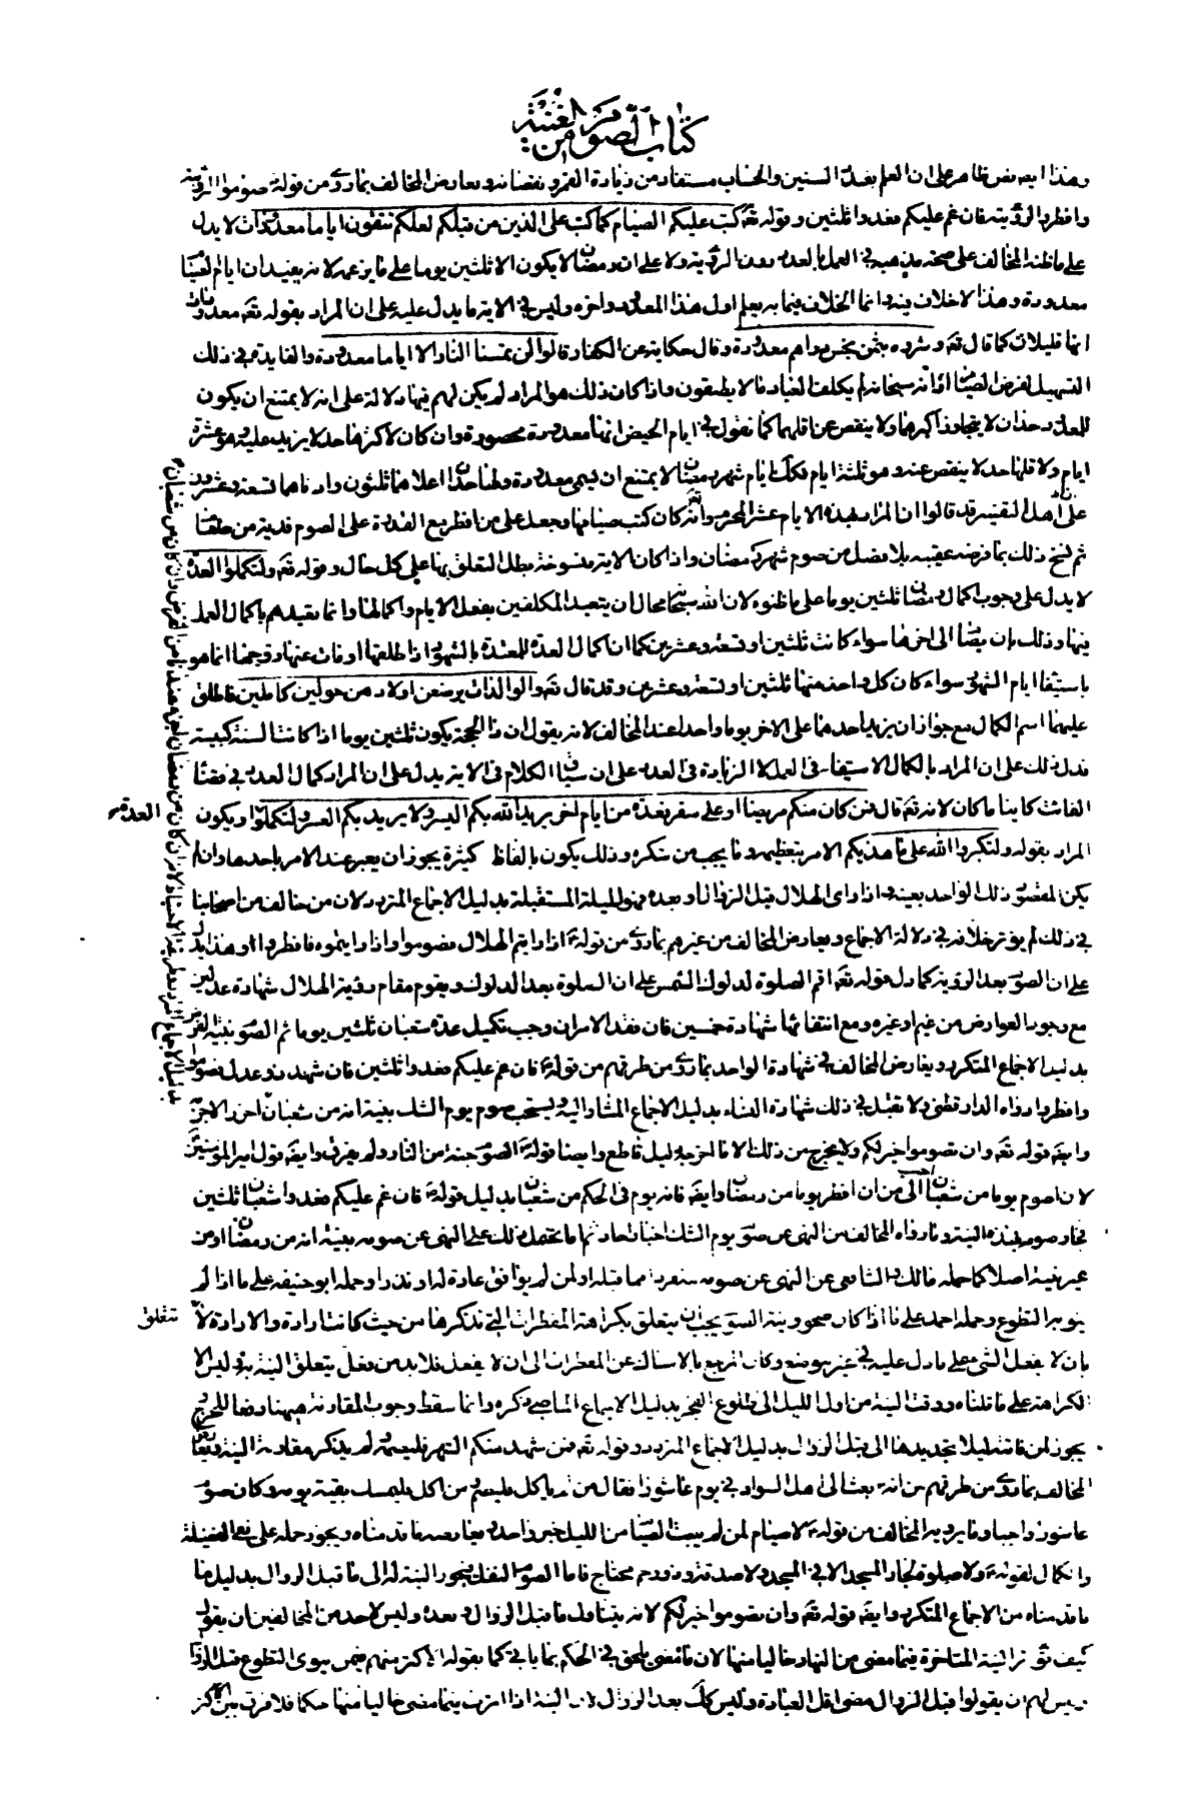 كتاب الصوم من الغنية
وهذا ايضا نص ظاهر على ان العلم بعدد السنين والحساب مستفاد من زيادة القمر ونقصانه ويعارض المخالف بما روى من قوله صوموا لرؤيته
وافطروا لرؤيته فان غم عليكم فعدوا ثلثين وقوله تعالى كتب عليكم الصيام كما كتب على الذين من قبلكم لعلكم تتقون اياما معدودات لا يدل
على ما ظنه المخالف على صحة مذهبه في العمل بالعدد دون الرؤية ولا على ان رمضان لا يكون الا ثلثين يوما على ما يزعمه لانه يفيد ان ايام الصيام
معدودة وهذا لا خلاف فيه وانما الخلاف فيما به يعلم اول هذا المعدود واخره وليس في الاية ما يدل عليه على ان المراد بقوله تعه معدودات
انها قليلات كما قال تعه وشروه بثمن بخس دراهم معدودة وقال حكاية عن الكفار وقالوا لن تمسنا النار الا اياما معدودة والفايدة في ذلك
التسهيل لفرض الصيام اذ انه سبحانه لم يكلف العباد ما لا يطيقون واذا كان ذلك هو المراد لم يكن لهم فيها دلالة على انه لا يمتنع ان يكون
للمعدود حدان لا يتجاوز اكبرهما ولا ينقص عن اقلهما كما نقول في ايام الحيض انها معدودة محصورة وان كان لاكثرها حد لا يزيد عليه وهو عشرة
ايام ولاقلها حد لا ينقص عنه وهو ثلثة ايام فكذلك ايام شهر رمضان لا يمتنع ان يسمى معدودة ولها حدان اعلاهما ثلثون وادناهما تسعة وعشرون
على ان اهل التفسير قد قالوا ان المراد بهذه الايام عشر المحرم وانه كان كتب صيامها وجعل على من افطر مع القدرة على الصوم فدية من طعام
ثم نسخ ذلك بما فرضه عقيبه بلا فصل من صوم شهر رمضان واذا كان الاية منسوخة بطل التعلق بها على كل حال وقوله تعه ولتكملوا العدة
لا يدل على وجوب اكمال رمضان ثلثين يوما على ما ظنوه لان الله سبحانه محال ان يتعبد المكلفين بفعل الايام واكمالها وانما تعبدهم باكمال العمل
فيها وذلك بان يصام الى اخرها سواء كانت ثلثين او تسعة وعشرين كما ان اكمال العدة للمعتدة بالشهور اذا طلقها او مات عنها زوجها انما هو
باستيفاء ايام الشهور سواء كان كل واحد منها ثلثين او تسعة وعشرين وقد قال تعه والوالدات يرضعن اولادهن حولين كاملين فاطلق
عليهما اسم الكمال مع جواز ان يزيد احدهما على الاخر يوما واحدا عند المخالف لانه يقول ان ذا الحجة يكون ثلثين يوما اذا كانت السنة كبيسة
فدل ذلك على ان المراد بالكمال الاستيفاء في العمل لا الزيادة في العدد على ان سياق الكلام في الاية يدل على ان المراد كمال العدد في قضاء
الفائت كاينا ما كان لانه تعه قال فمن كان منكم مريضا او على سفر فعدة من ايام اخر يريد الله بكم اليسر ولا يريد بكم العسر ولتكملوا ويكون
العدة
المراد بقوله ولتكبروا الله على ما هديكم الامر بتعظيمه وما يجب من شكره وذلك يكون بالفاظ كثيرة يجوز ان يعبر عند الامر باحدها وان لم
يكن المقصود ذلك الواحد بعينه واذا راى الهلال قبل الزوال او بعده فهو لليلة المستقبلة بدليل الاجماع المتردد ولان من خالف من اصحابنا
في ذلك لم يؤثر خلافه في دلالة الاجماع ويعارض المخالف من غيرهم بما روى من قوله اذا رايتم الهلال فصوموا واذا رايتموه فافطروا وهذا يدل
على ان الصوم بعد الرؤية كما دل قوله تعه اقم الصلوة لدلوك الشمس على ان الصلوة بعد الدلوك ويقوم مقام رؤية الهلال شهادة عدلين
مع وجود العوارض من غيم او غيره ومع انتفائها شهادة خمسين فان فقد الامران وجب تكميل عدة شعبان ثلثين يوما ثم الصوم بنية الفرض
بدليل الاجماع المتكرر ويعارض المخالف في شهادة الواحد بما روى من طرقهم من قوله فان غم عليكم فعدوا ثلثين فان شهد ذو عدل فصوموا
وافطروا رواه الدارقطني ولا تقبل في ذلك شهادة النساء بدليل الاجماع المشار اليه ويستحب صوم يوم الشك بنية انه من شعبان
وايضا قوله تعه وان تصوموا خير لكم ولا يخرج من ذلك الا ما اخرجه دليل قاطع وايضا قوله الصوم جنة من النار ولم يفرق وايضا قول امير المؤمنين
لان اصوم يوما من شعبان احب الى من ان افطر يوما من رمضان وايضا فانه يوم في الحكم من شعبان بدليل قوله فان غم عليكم فعدوا شعبان ثلثين
فجاز صومه بهذه النية وما رواه المخالف من النهى عن صوم يوم الشك اخبار احاد ثم انها على النهى عن صومه بنية انه من رمضان او من
غير نية اصلا كما حمله مالك والشافعى عن النهى عن صومه منفردا مما قبله او لمن لم يوافق عادة له او نذرا وحمله ابو حنيفة على ما اذا لم
ينو به التطوع وحمله احمد على ما اذا كان صحو ونية الصوم يجب ان يتعلق بكراهة المفطرات التي نذكرها من حيث كانت ارادة والارادة لا
تتعلق
بان لا يفعل الشئ على ما دل عليه في غير موضع وكان المرجع بالامساك عن المفطرات الى ان لا يفعل فلا بد من فعل يتعلق النية به وليس الا
الكراهة على ما قلناه ووقت النية من اول الليل الى طلوع الفجر بدليل الاجماع الماضى ذكره وانما سقط وجوب المقارنة ههنا رفعا للحرج
يجوز لمن فاتته ليلا تجديدها الى قبل الزوال بدليل الاجماع المتردد وقوله تعه فمن شهد منكم الشهر فليصمه ولم يذكر مقارنة النية ويعارض
المخالف بما روى من طرقهم من انه بعث الى اهل السواد في يوم عاشورا فقال من لم ياكل فليصم ومن اكل فليمسك بقية يومه وكان صوم
عاشورا واجبا وما يرويه المخالف من قوله لا صيام لمن لم يبيت الصيام من الليل خبر واحد معارضه ما قدمناه ويجوز حمله على نفى الفضيلة
والكمال لقوله ولا صلوة لجار المسجد الا في المسجد ولا صدقة وذو رحم محتاج فاما الصوم النفل فيجوز النية له الى ما قبل الزوال بدليل ما
ما قدمناه من الاجماع المتكرر وايضا قوله تعه وان تصوموا خير لكم لانه يتناول ما قبل الزوال وبعده وليس لاحد من المخالفين ان يقول
كيف تؤثر النية المتاخرة فيما مضى من النهار خاليا منها لان ما مضى يلحق في الحكم بما ياتى كما يقوله اكثرهم فيمن نوى التطوع قبل الزوال
وليس لهم ان يقولوا قبل الزوال مضى اقل العبادة وليس كذلك بعد الزوال لان النية اذا اثرت فيما مضى خاليا منها حكما فلا فرق بين الاكثر